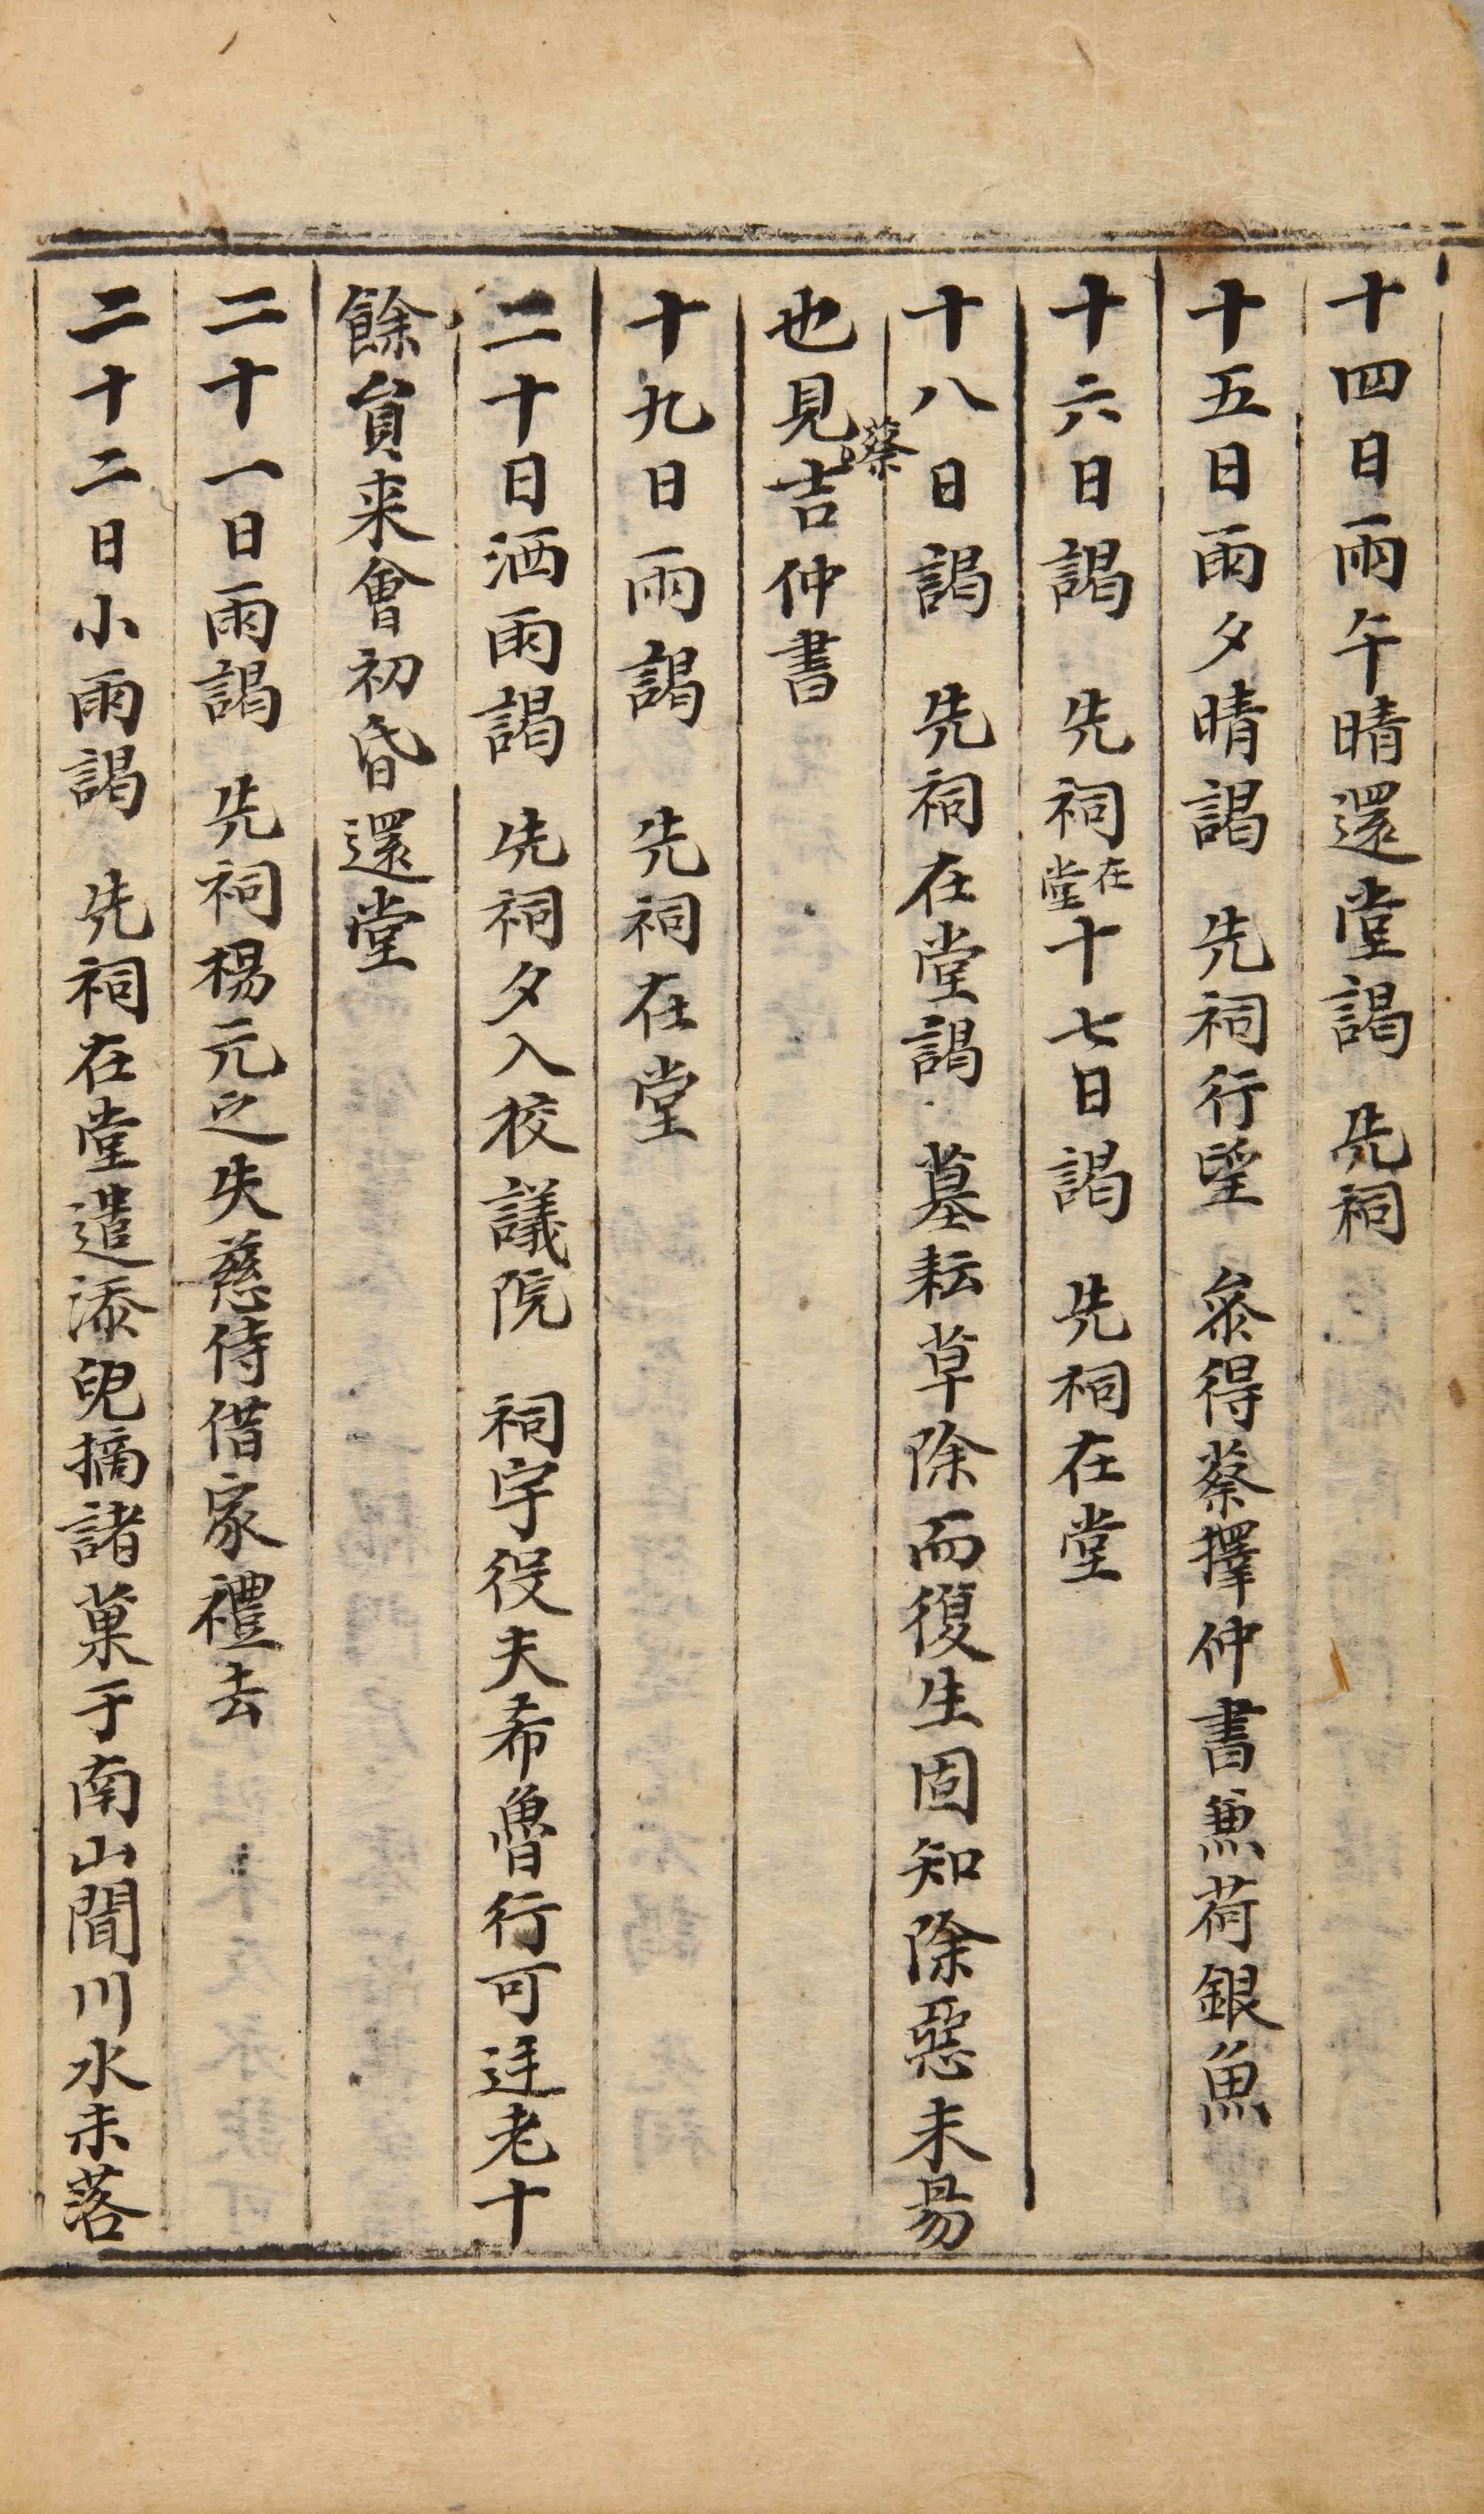 十四日雨午晴還堂謁 先祠
十五日雨夕晴謁 先祠行望 叅得蔡擇仲書兼荷銀魚
十六日謁 先祠在堂十七日謁 先祠在堂
十八日謁 先祠在堂謁 墓耘草除而復生固知除惡未易
也見蔡吉仲書
十九日雨謁 先祠在堂
二十日洒雨謁 先祠夕入校議院 祠宇役夫希魯行可迋老十
餘員来會初昏還堂
二十一日雨謁 先祠楊元之失慈侍借家禮去
二十二日小雨謁 先祠在堂遣添兒摘諸菓于南山間川水未落